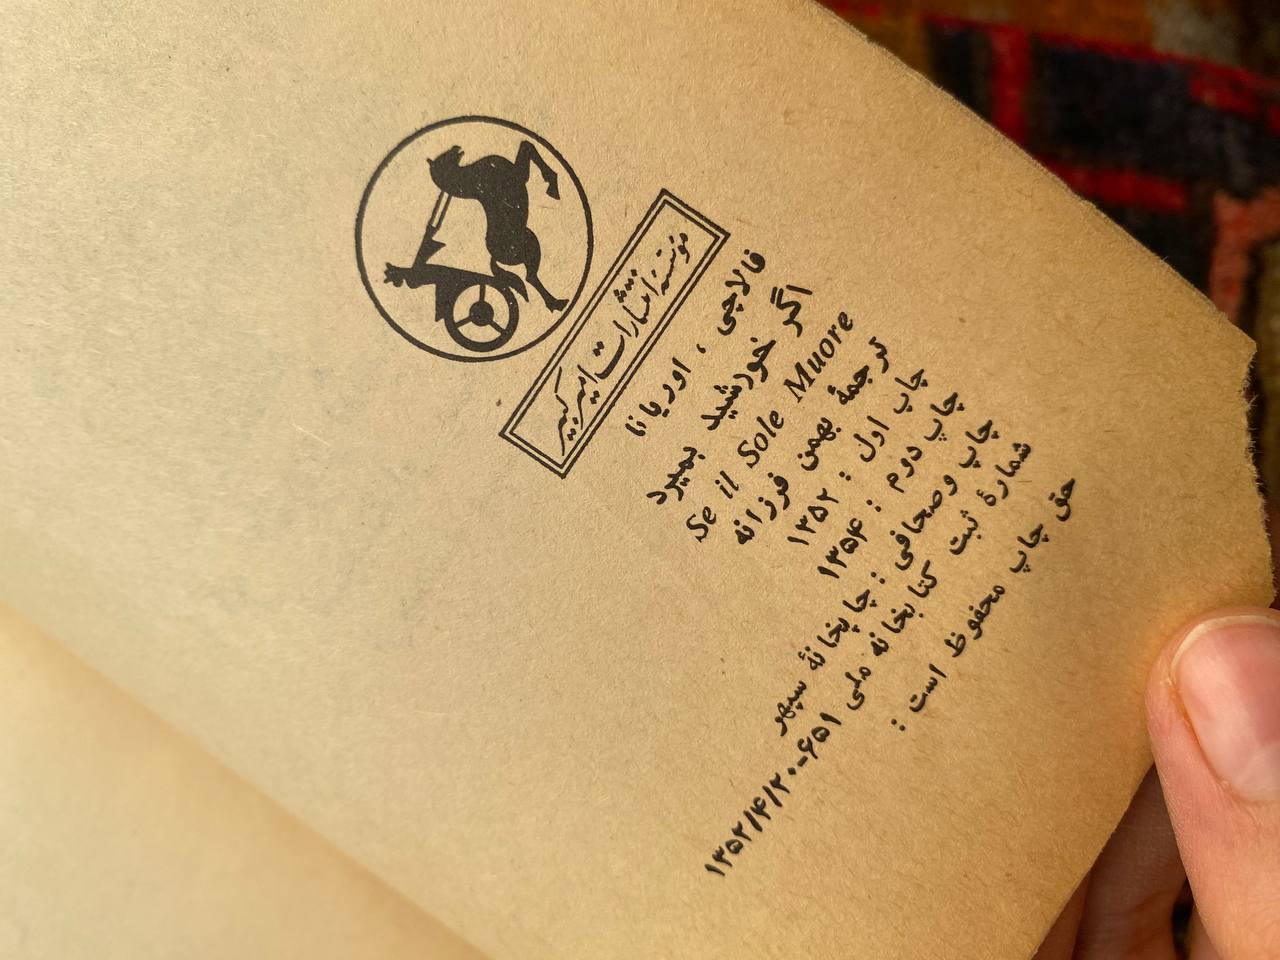 مؤسسهٔ انتشارات امیرکبیر
فالاچی ، اوریانا
اگر خورشید بمیرد
Se il Sole Muore
ترجمهٔ بهمن فرزانه
چاپ اول : ۱۳۵۲
چاپ دوم : ۱۳۵۴
چاپ وصحافی : چاپخانهٔ سپهر
شمارهٔ ثبت کتابخانه ملی ۶۵۱-۱۳۵۲/۴/۲۰
حق چاپ محفوظ است :